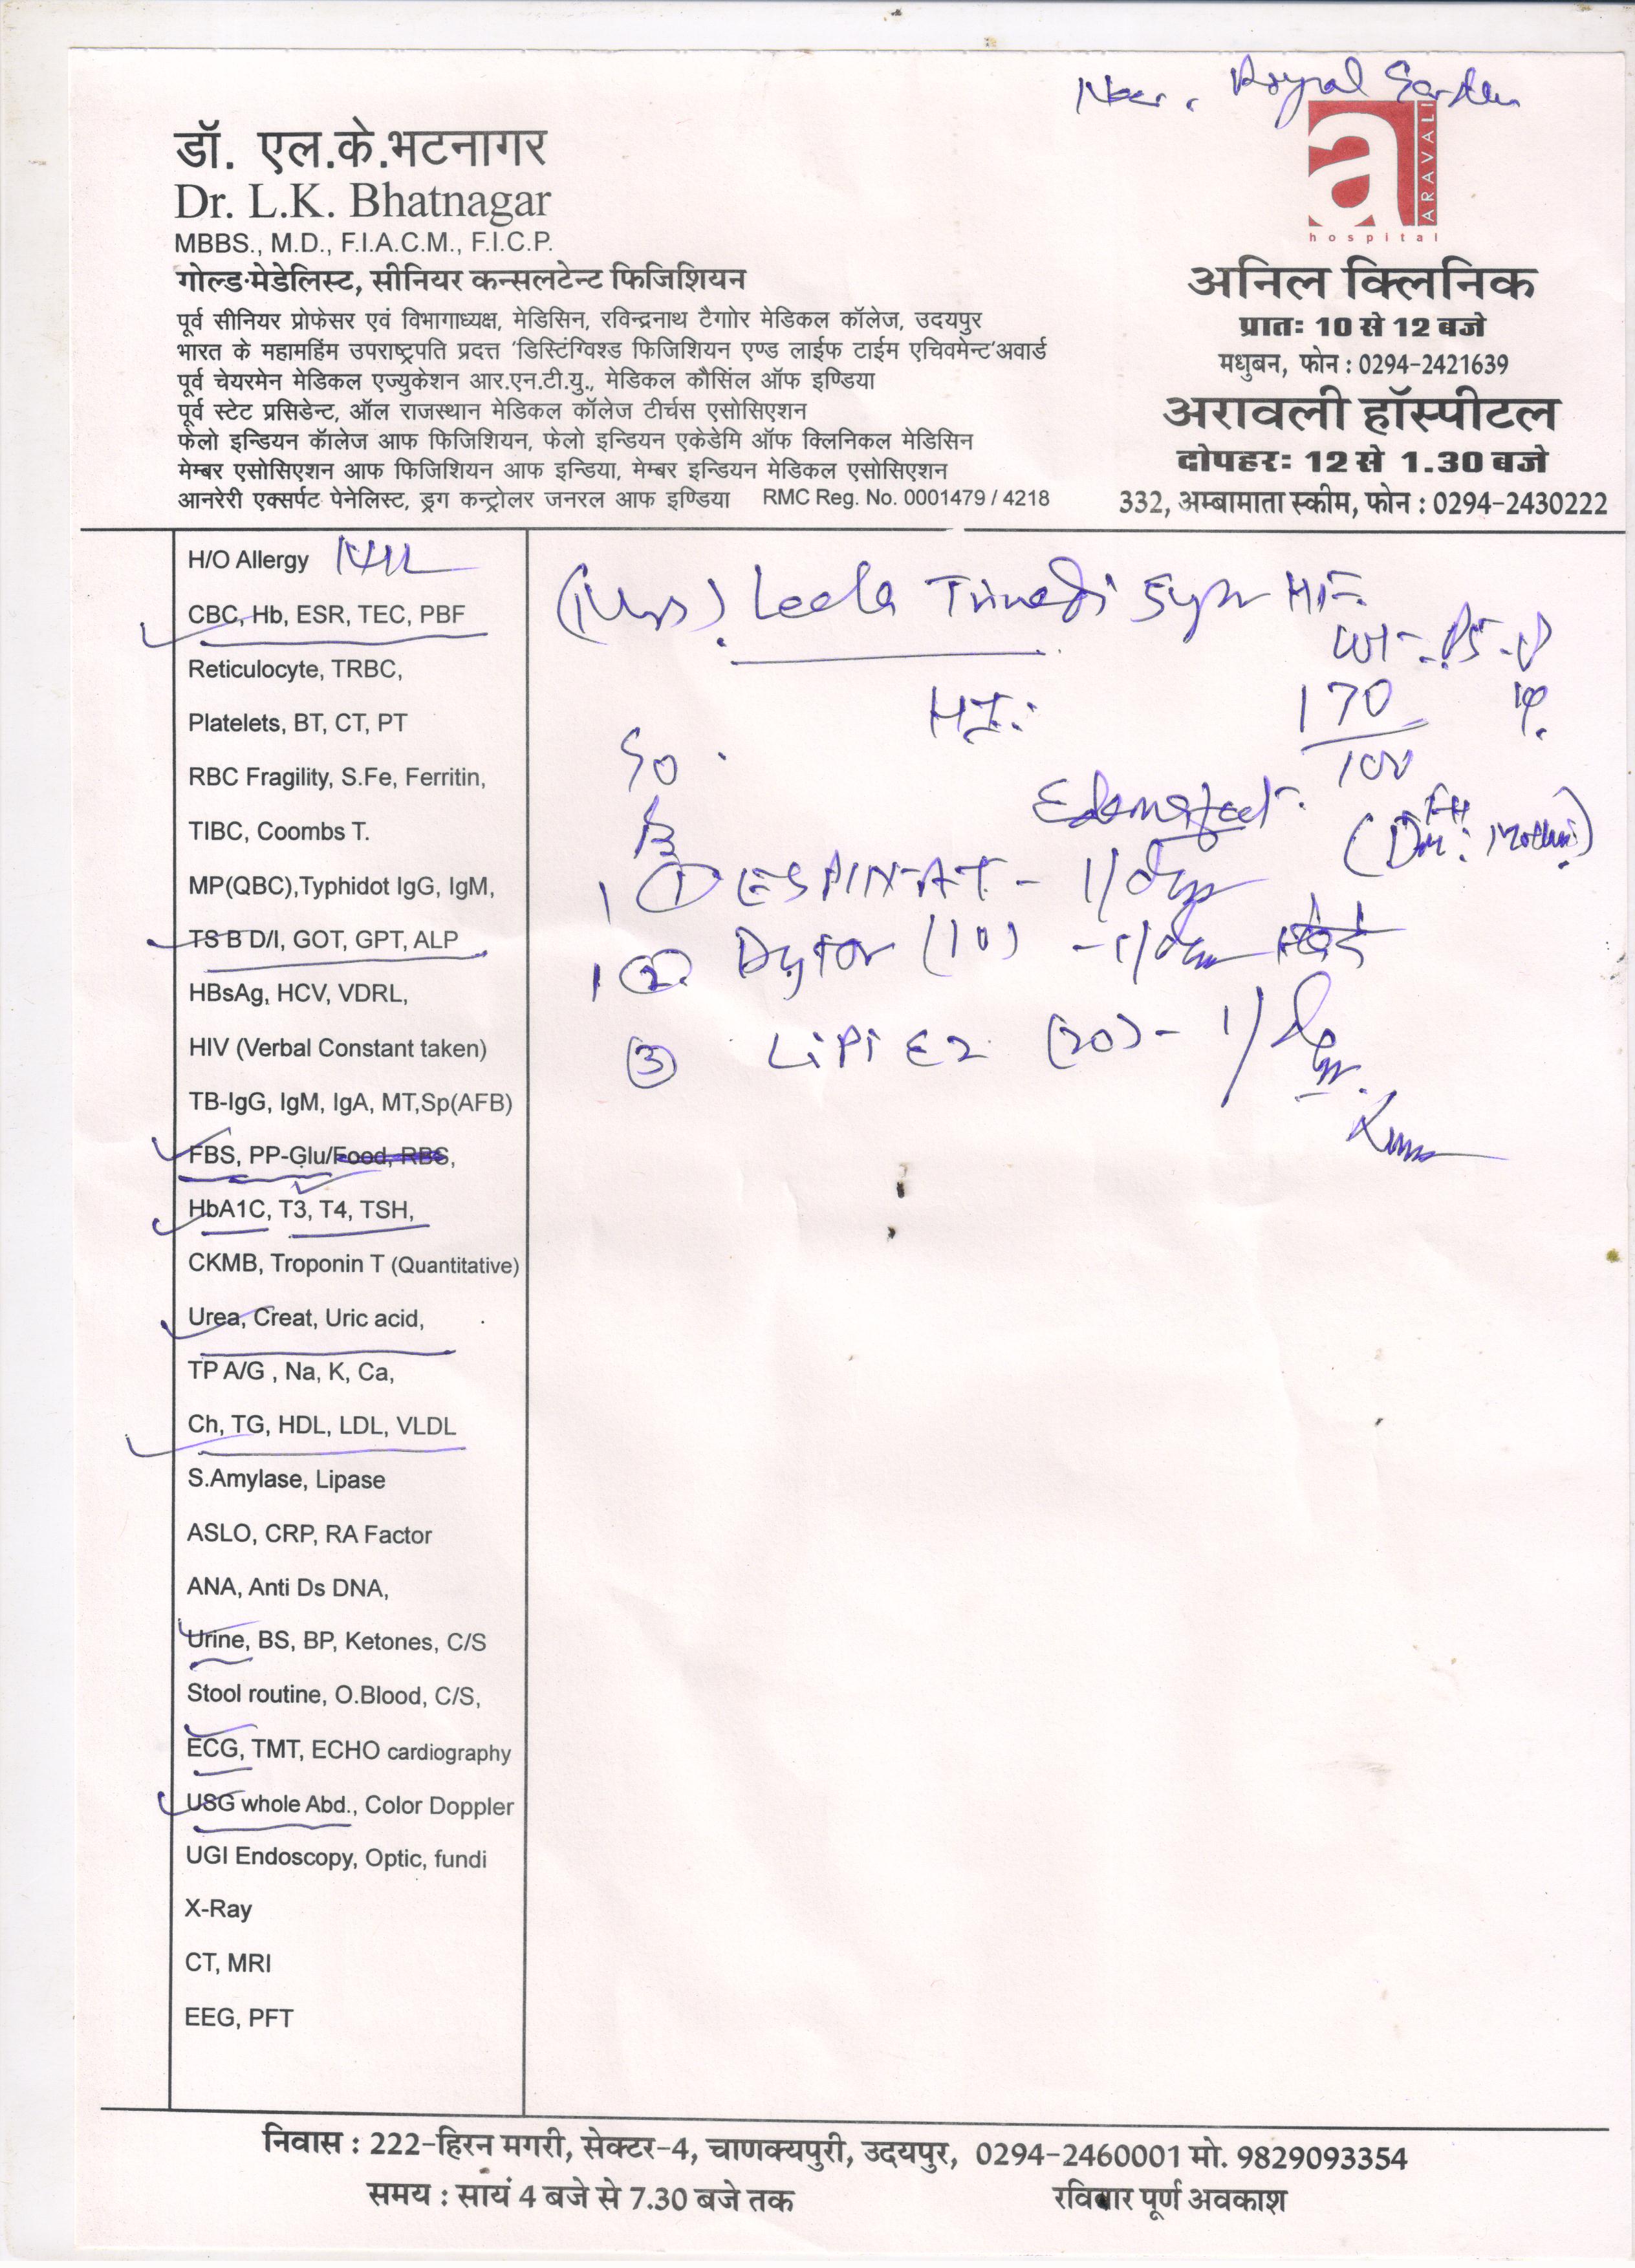 Near. Royal Garden
डॉ. एल.के.भटनागर
Dr. L.K. Bhatnagar
MBBS., M.D., F.I.A.C.M., F.I.C.P.
गोल्ड-मेडेलिस्ट, सीनियर कन्सलटेन्ट फिजिशियन
पूर्व सीनियर प्रोफेसर एवं विभागाध्यक्ष, मेडिसिन, रविन्द्रनाथ टैगाोर मेडिकल कॉलेज, उदयपुर
भारत के महामहिम उपराष्ट्रपति प्रदत्त 'डिस्टिंग्विश्ड फिजिशियन एण्ड लाईफ टाईम एचिवमेन्ट'अवार्ड
पूर्व चेयरमेन मेडिकल एज्युकेशन आर.एन.टी.यु., मेडिकल कौसिंल ऑफ इण्डिया
पूर्व स्टेट प्रसिडेन्ट, ऑल राजस्थान मेडिकल कॉलेज टीर्चस एसोसिएशन
फेलो इन्डियन कॅालेज आफ फिजिशियन, फेलो इन्डियन एकेडेमि ऑफ क्लिनिकल मेडिसिन
मेम्बर एसोसिएशन आफ फिजिशियन आफ इन्डिया, मेम्बर इन्डियन मेडिकल एसोसिएशन
आनरेरी एक्सर्पट पेनेलिस्ट, ड्रग कन्ट्रोलर जनरल आफ इण्डिया RMC Reg. No. 0001479 / 4218
a ARAVALI
hospital
अनिल क्लिनिक
प्रातः 10 से 12 बजे
मधुबन, फोन : 0294-2421639
अरावली हॉस्पीटल
दोपहरः 12 से 1.30 बजे
332, अम्बामाता स्कीम, फोन : 0294-2430222
H/O Allergy Nil
CBC, Hb, ESR, TEC, PBF
Reticulocyte, TRBC,
Platelets, BT, CT, PT
RBC Fragility, S.Fe, Ferritin,
TIBC, Coombs T.
MP(QBC),Typhidot IgG, IgM,
TS B D/I, GOT, GPT, ALP
HBsAg, HCV, VDRL,
HIV (Verbal Constant taken)
TB-IgG, IgM, IgA, MT,Sp(AFB)
FBS, PP-Glu/Food, RBS,
HbA1C, T3, T4, TSH,
CKMB, Troponin T (Quantitative)
Urea, Creat, Uric acid,
TP A/G , Na, K, Ca,
Ch, TG, HDL, LDL, VLDL
S.Amylase, Lipase
ASLO, CRP, RA Factor
ANA, Anti Ds DNA,
Urine, BS, BP, Ketones, C/S
Stool routine, O.Blood, C/S,
ECG, TMT, ECHO cardiography
USG whole Abd., Color Doppler
UGI Endoscopy, Optic, fundi
X-Ray
CT, MRI
EEG, PFT
(Mrs) Leela Trivedi
170
100
Edema feet
(DM: Mother)
① ESPIN-AT - 1/day
② Dytor (10) - 1/day
③ LiPi EZ (20) - 1/day
निवास : 222-हिरन मगरी, सेक्टर-4, चाणक्यपुरी, उदयपुर, 0294-2460001 मो. 9829093354
समय : सायं 4 बजे से 7.30 बजे तक रविवार पूर्ण अवकाश